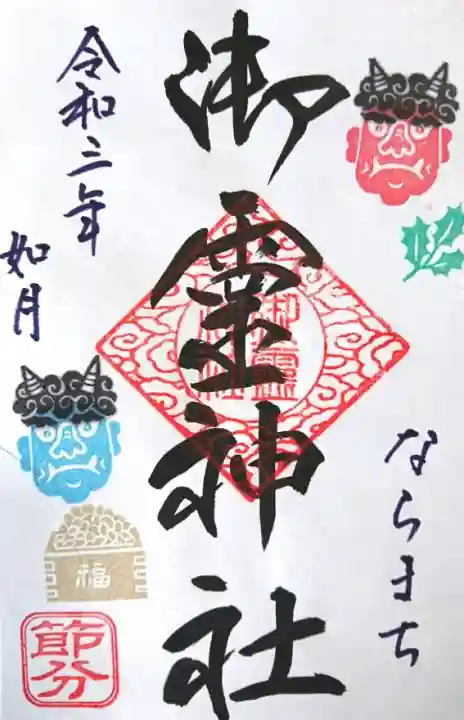 御霊神社
ならまち
令和三年
如月
御霊神社
福
節分